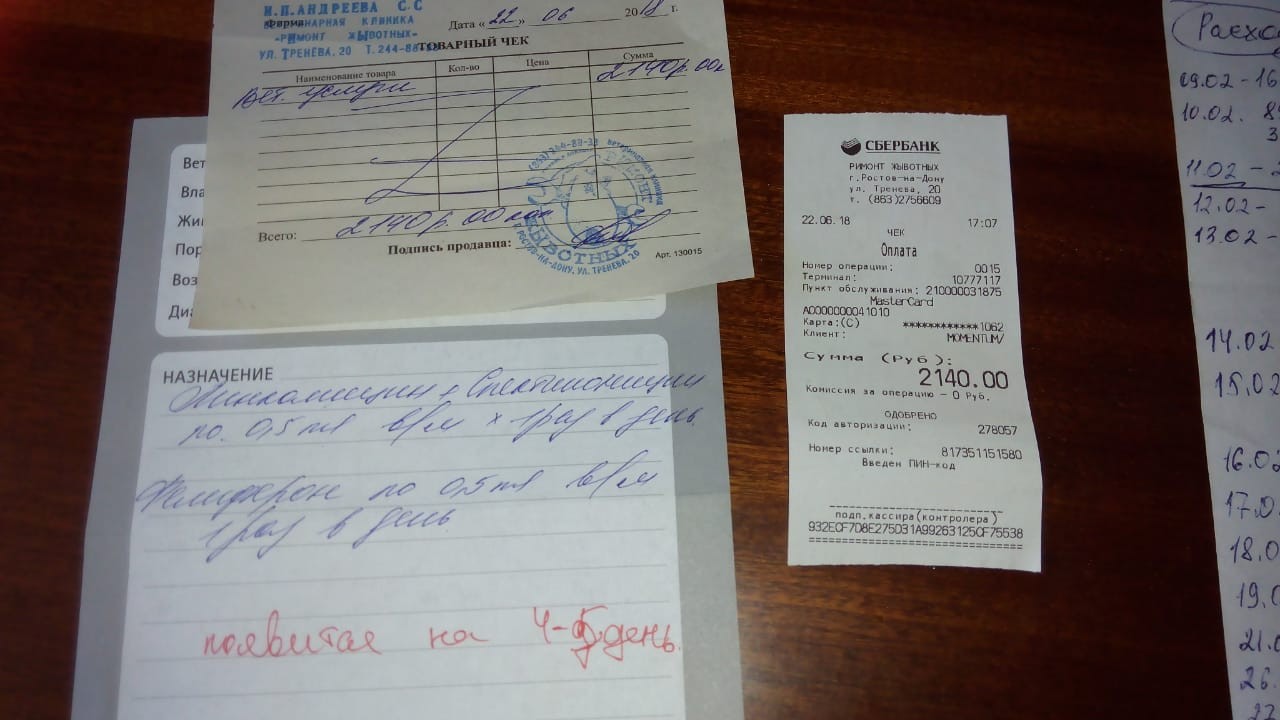 И.П.АНДРЕЕВА С.С
Фирма
ВЕТЕРИНАРНАЯ КЛИНИКА
-РИМОНТ ЖЫВОТНЫХ-
УЛ. ТРЕНЕВА. 20 Т.244-88-
Дата «22» 06 2018 г.
ТОВАРНЫЙ ЧЕК
Наименование товара Кол-во Цена Сумма
Вет. услуги 2140р.00к
Всего: 2140р.00коп
Подпись продавца:
Арт. 130015
ЖЫВОТНЫХ
РОСТОВ-НА-ДОНУ. УЛ. ТРЕНЕВА. 20
Вет
Вла
Жи
Пор
Воз
Диа
НАЗНАЧЕНИЕ
Линкомицин + Спектиномицин
по 0,5 мл в/м х 1 раз в день
Фелиферон по 0,5 мл в/м
1 раз в день
появится на 4-5 день.
СБЕРБАНК
РИМОНТ ЖЫВОТНЫХ
г.Ростов-на-Дону
ул. Тренева, 20
т. (863)2756609
22.06.18 17:07
ЧЕК
Оплата
Номер операции: 0015
Терминал: 10777117
Пункт обслуживания: 210000031875
MasterCard
A0000000041010
Карта:(C) ************1062
Клиент: MOMENTUM/
Сумма (Руб):
2140.00
Комиссия за операцию - 0 Руб.
ОДОБРЕНО
Код авторизации: 278057
Номер ссылки: 817351151580
Введен ПИН-код
подп.кассира(контролера)
932ECF7D8E275D31A99263125CF75538
Расхо
09.02 - 16
10.02. 8
3
11.02 - 2
12.02 -
13.02 -
14.02
15.02
16.02
17.0
18.0
19.0
21.0
26.
27